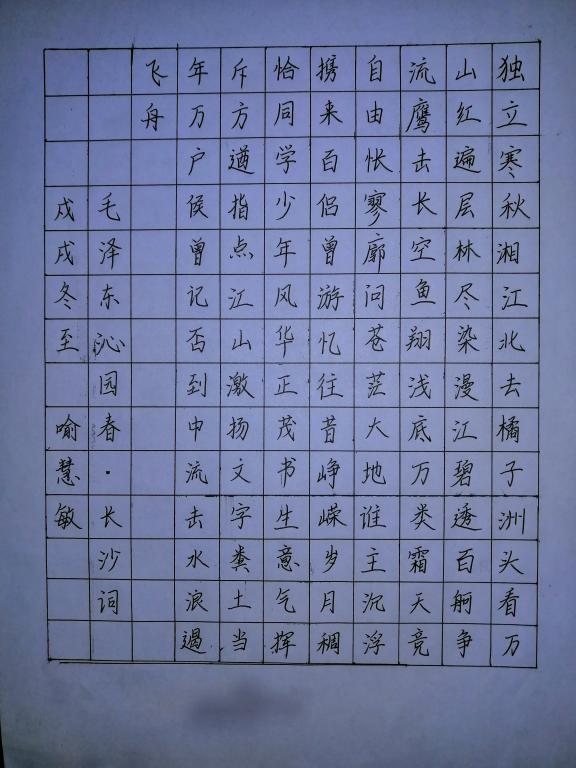 独立寒秋湘江北去橘子洲头看万
山红遍层林尽染漫江碧透百舸争
流鹰击长空鱼翔浅底万类霜天竞
自由怅寥廓问苍茫大地谁主沉浮
携来百侣曾游忆往昔峥嵘岁月稠
恰同学少年风华正茂书生意气挥
斥方遒指点江山激扬文字粪土当
年万户侯曾记否到中流击水浪遏
飞舟
毛泽东沁园春·长沙词
戌戌冬至 喻慧敏